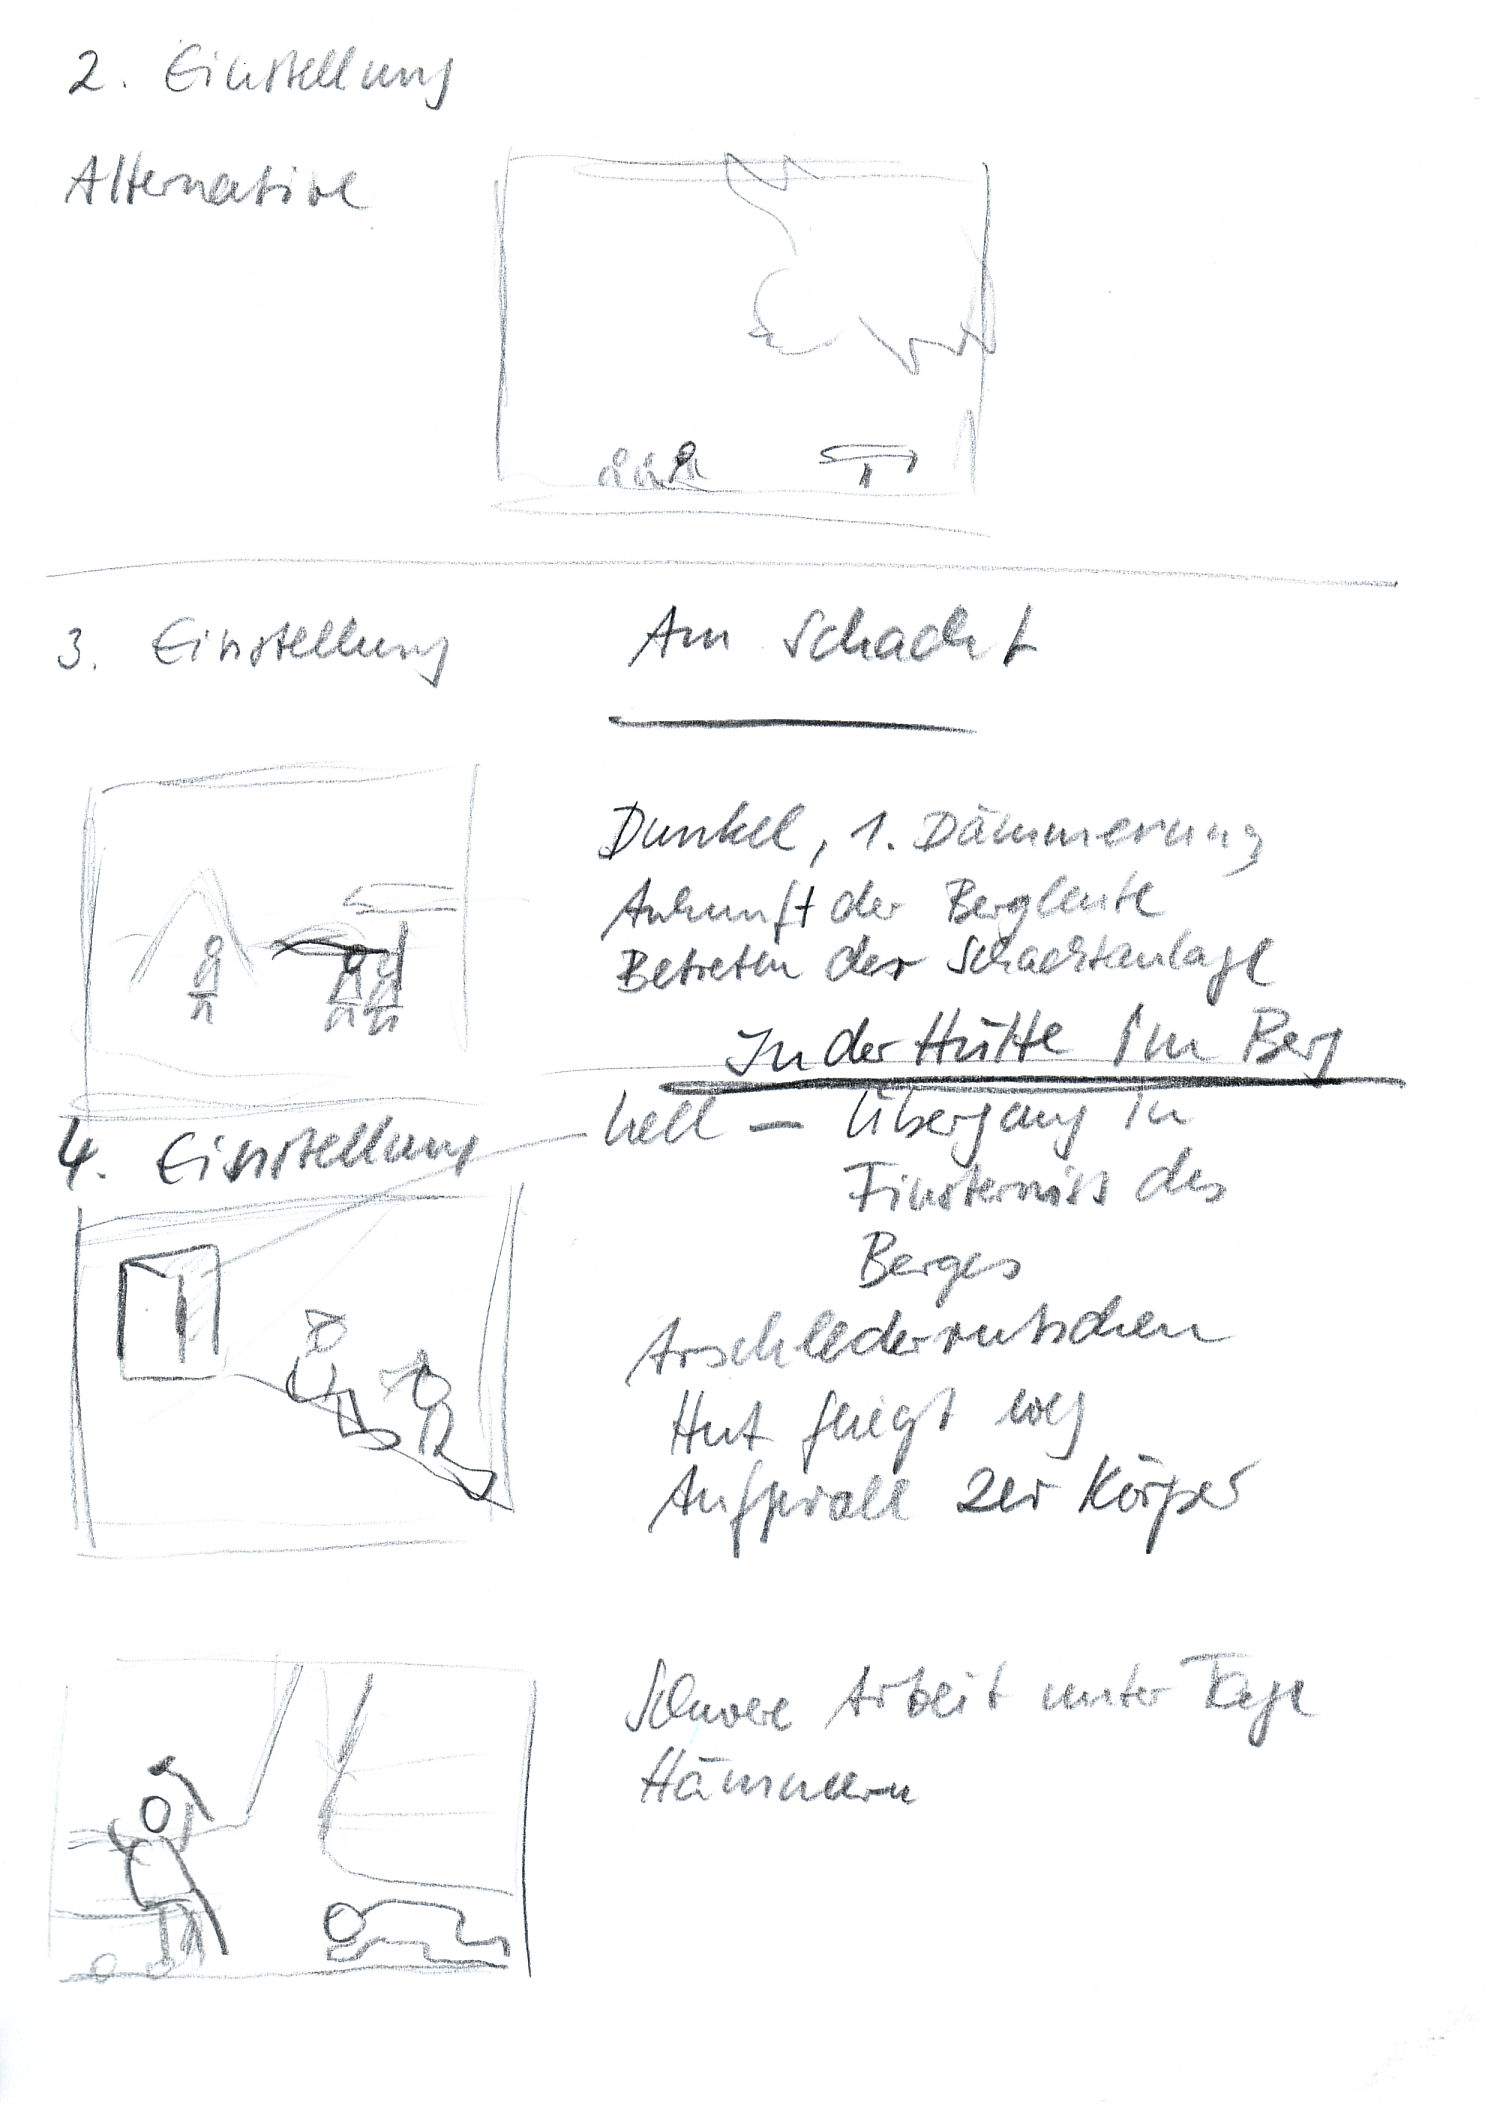 2. Einstellung
Alternative
3. Einstellung
Am Schacht
Dunkel, 1. Dämmerung
Ankunft der Bergleute
Betreten der Schachtanlage
In der Hütte im Berg
4. Einstellung
hell – Übergang in
Finsterniss des
Berges
Arschlederrutschen
Hut fliegt weg
Aufprall 2er Körper
Schwere Arbeit unter Tage
Hämmern